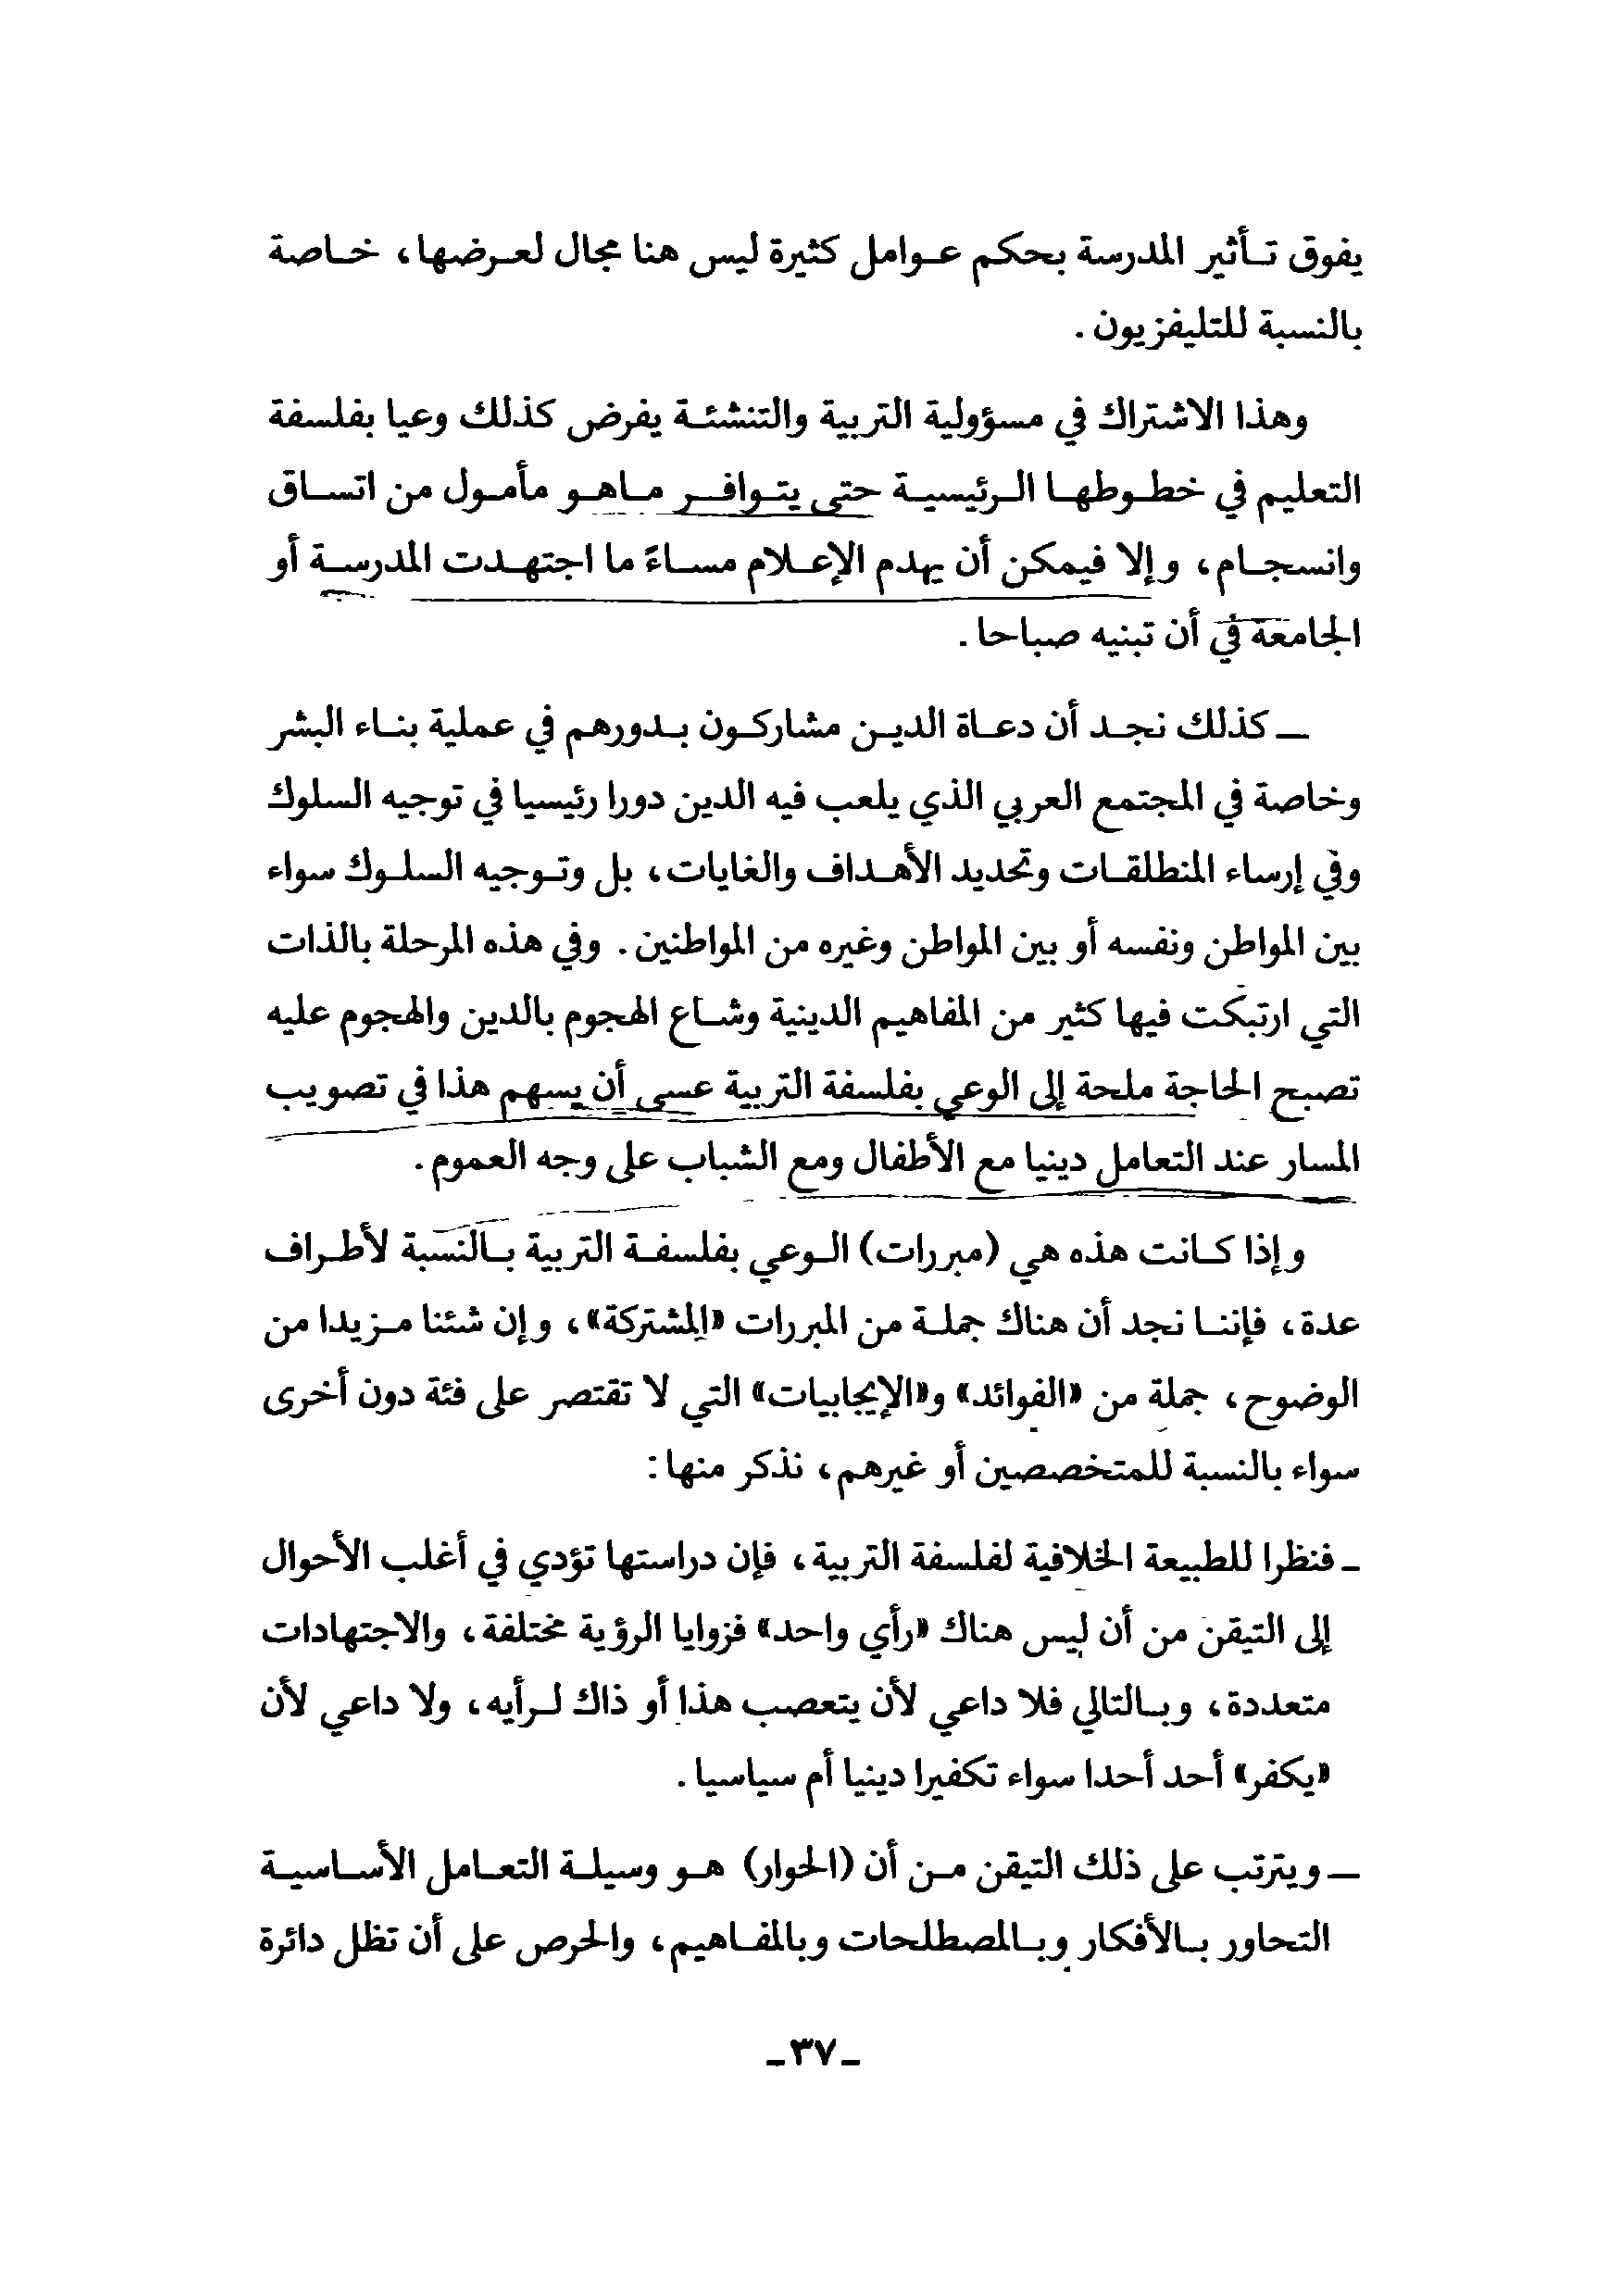 يفوق تأثير المدرسة بحكم عوامل كثيرة ليس هنا مجال لعرضها، خاصة
بالنسبة للتليفزيون.
وهذا الاشتراك في مسؤولية التربية والتنشئة يفرض كذلك وعيا بفلسفة
التعليم في خطوطها الرئيسية حتى يتوافر ماهو مأمول من اتساق
وانسجام، وإلا فيمكن أن يهدم الإعلام مساءً ما اجتهدت المدرسة أو
الجامعة في أن تبنيه صباحا.
ـ كذلك نجد أن دعاة الدين مشاركون بدورهم في عملية بناء البشر
وخاصة في المجتمع العربي الذي يلعب فيه الدين دورا رئيسيا في توجيه السلوك
وفي إرساء المنطلقات وتحديد الأهداف والغايات، بل وتوجيه السلوك سواء
بين المواطن ونفسه أو بين المواطن وغيره من المواطنين. وفي هذه المرحلة بالذات
التي ارتبكت فيها كثير من المفاهيم الدينية وشاع الهجوم بالدين والهجوم عليه
تصبح الحاجة ملحة إلى الوعي بفلسفة التربية عسى أن يسهم هذا في تصويب
المسار عند التعامل دينيا مع الأطفال ومع الشباب على وجه العموم.
وإذا كانت هذه هي (مبررات) الوعي بفلسفة التربية بالنسبة لأطراف
عدة، فإننا نجد أن هناك جملة من المبررات «المشتركة»، وإن شئنا مزيدا من
الوضوح، جملة من «الفوائد» و«الإيجابيات» التي لا تقتصر على فئة دون أخرى
سواء بالنسبة للمتخصصين أو غيرهم، نذكر منها:
ـ فنظرا للطبيعة الخلافية لفلسفة التربية، فإن دراستها تؤدي في أغلب الأحوال
إلى التيقن من أن ليس هناك «رأي واحد» فزوايا الرؤية مختلفة، والاجتهادات
متعددة، وبالتالي فلا داعي لأن يتعصب هذا أو ذاك لرأيه، ولا داعي لأن
«يكفر» أحد أحدا سواء تكفيرا دينيا أم سياسيا.
ـ ويترتب على ذلك التيقن من أن (الحوار) هو وسيلة التعامل الأساسية
التحاور بالأفكار وبالمصطلحات وبالمفاهيم، والحرص على أن تظل دائرة
ـ ٣٧ ـ